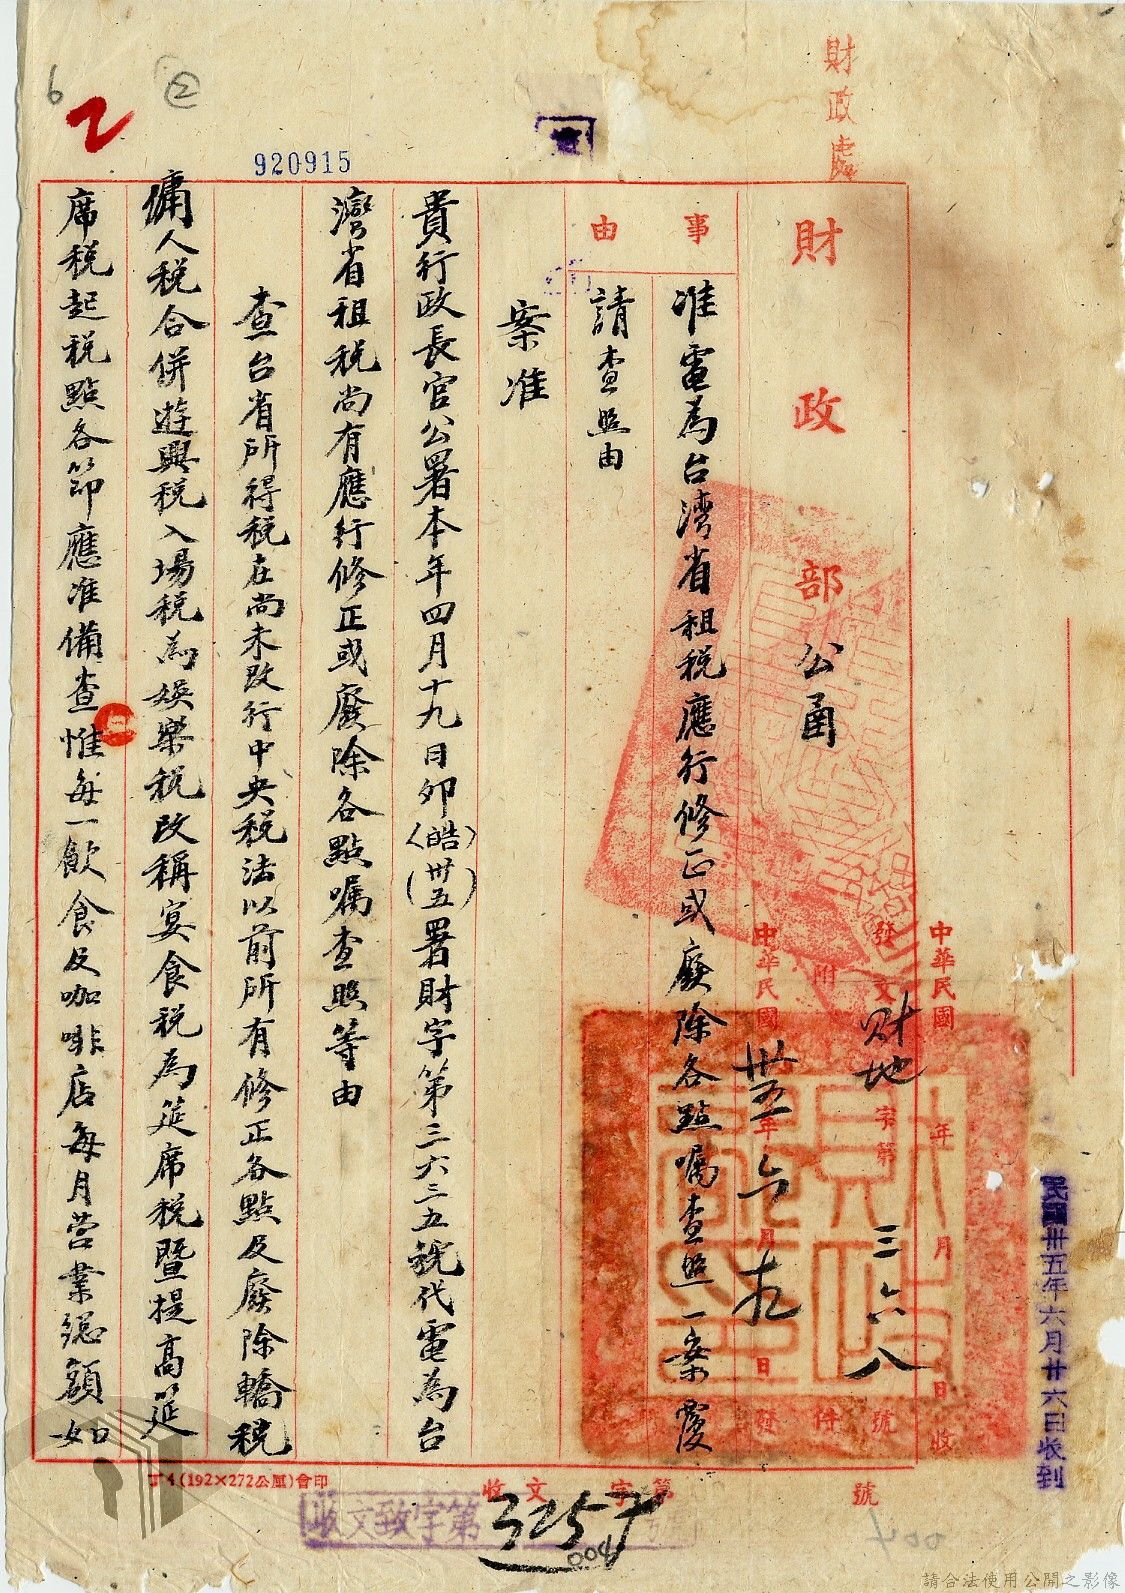 財政處
民國卅五年六月廿六日收到
中華民國 年 月 日收
發文財地字第三六八號
附 件
中華民國卅五年六月 日發
財政部公函
事由
准電為台灣省租稅應行修正或廢除各點囑查照一案覆
請查照由
案准
貴行政長官公署本年四月十九日卯〈皓〉(卅五)署財字第三六三五號代電為台
灣省租稅尚有應行修正或廢除各點囑查照等由
查台省所得稅在尚未改行中央稅法以前所有修正各點及廢除轎稅
傭人稅合併遊興稅入場稅為娛樂稅改稱宴食稅為筵席稅暨提高筵
席稅起稅點各節應准備查惟每一飲食及咖啡店每月營業總額如
920915
6
2
②
丁4(192×272公厘)會印
收文 字第 號
收文致字第 號
3257
004
004
請合法使用公開之影像